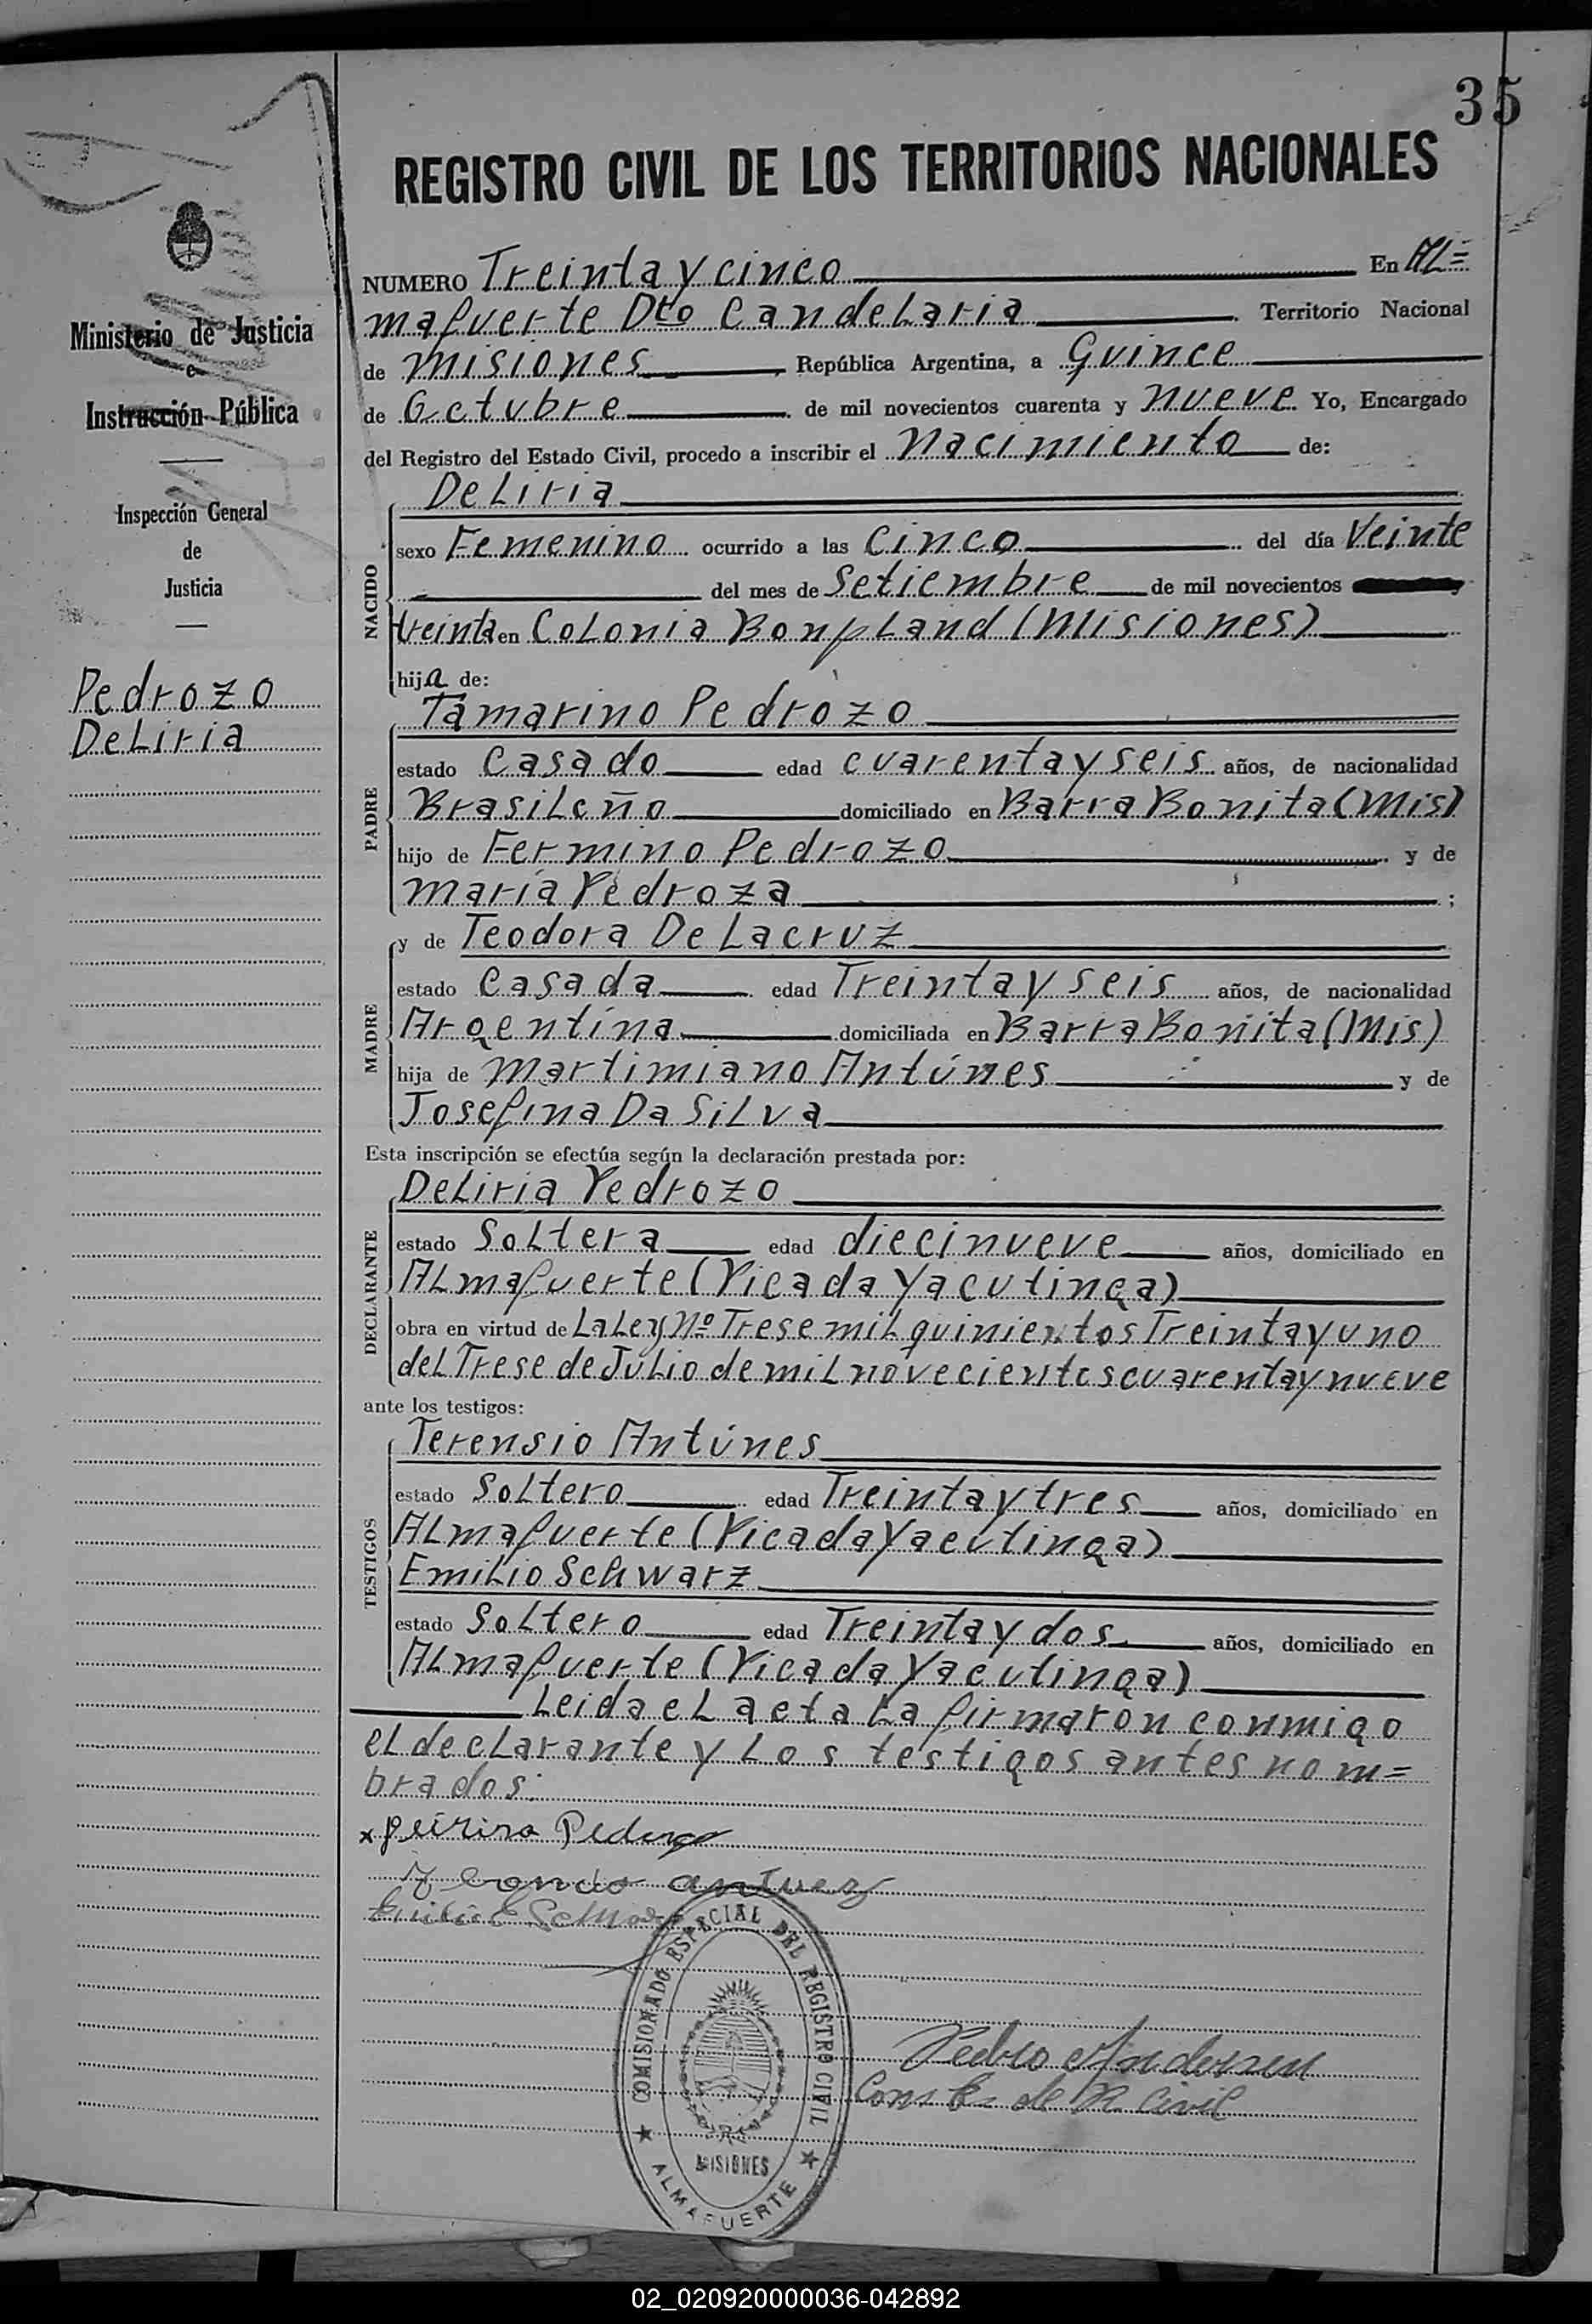 35
REGISTRO CIVIL DE LOS TERRITORIOS NACIONALES
Ministerio de Justicia
e
Instrucción Pública
Inspección General
de
Justicia
Pedrozo
DeLiria
NUMERO Treinta y cinco En AL=
mafuerte Dto CandeLaria Territorio Nacional
de Misiones, República Argentina, a Quince
de Octubre de mil novecientos cuarenta y nueve Yo, Encargado
del Registro del Estado Civil, procedo a inscribir el nacimiento de:
NACIDO
DeLiria
sexo Femenino ocurrido a las Cinco del día Veinte
del mes de Setiembre de mil novecientos
treinta en CoLonia BonpLand (Misiones)
hija de:
PADRE
Tamarino Pedrozo
estado Casado edad cuarenta y seis años, de nacionalidad
BrasiLeño domiciliado en Barra Bonita (Mis)
hijo de Fermino Pedrozo y de
maría Pedroza ;
MADRE
y de Teodora De Lacruz
estado Casada edad Treinta y seis años, de nacionalidad
Argentina domiciliada en Barra Bonita (Mis)
hija de Martimiano Antúnes y de
Josefina Da SiLva
Esta inscripción se efectúa según la declaración prestada por:
DECLARANTE
DeLiria Pedrozo
estado SoLtera edad diecinueve años, domiciliado en
ALmafuerte (Picada Yacutinga)
obra en virtud de La Ley Nº Trese miL quinientos Treinta y uno
deL Trese de JuLio de miL novecientos cuarenta y nueve
ante los testigos:
TESTIGOS
Terensio Antúnes
estado SoLtero edad Treinta y tres años, domiciliado en
ALmafuerte (Picada Yacutinga)
EmiLio Schwarz
estado SoLtero edad Treinta y dos años, domiciliado en
ALmafuerte (Picada Yacutinga)
Leida eL acta La firmaron conmigo
eL decLarante y Los testigos antes nom=
brados:
x Pedrozo
antunes
COMISIONADO ESPECIAL DEL REGISTRO CIVIL
MISIONES
ALMAFUERTE
Pedro Andersen
de R. Civil
02_020920000036-042892